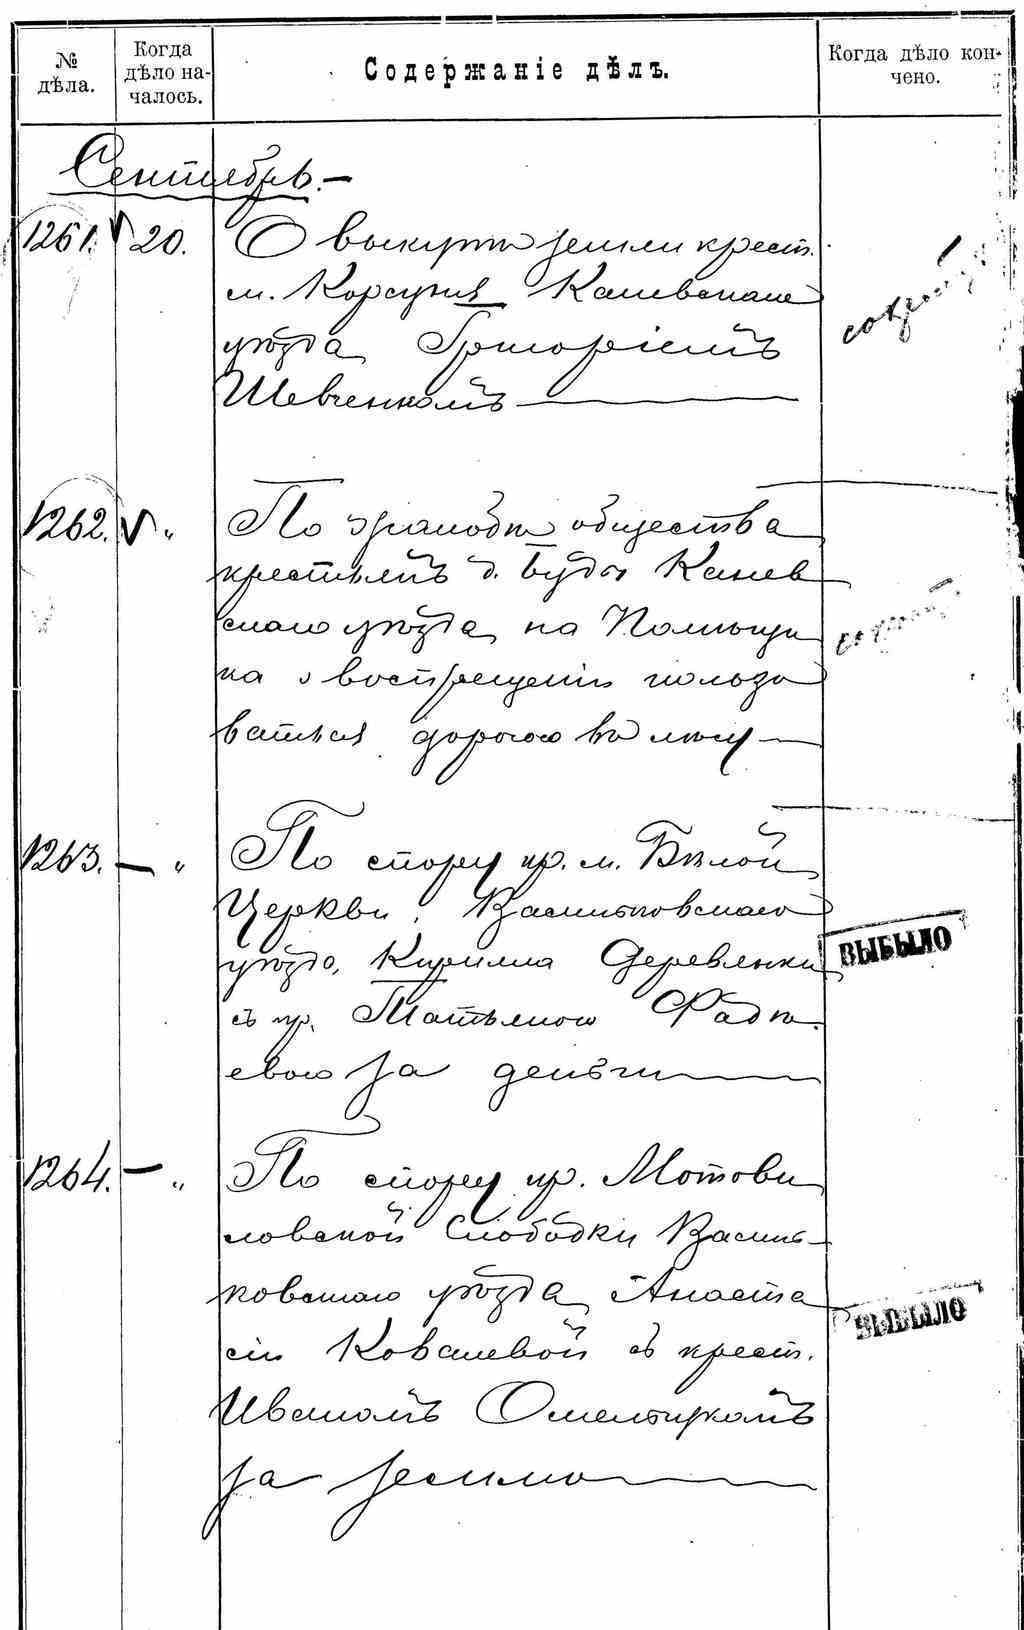 № дѣла.
Когда дѣло на-
чалось.
Содержаніе дѣлъ.
Когда дѣло кон-
чено.
Сентябрь.—
1261. 20. О выкупѣ земли крест.
м. Корсуня Каневскаго
уѣзда Григоріемъ
Шевченкомъ
1262. " По жалобѣ общества
крестьянъ д. Буды Канев
скаго уѣзда на Помѣщи
ка о воспрещеніи пользо
ваться дорогою въ лѣсу
1263. — " По спору кр. м. Бѣлой
Церкви, Васильковскаго
уѣзда, Кирилла Деревянки
съ кр. Татьяною Фадѣ
евою за деньги
ВЫБЫЛО
1264. — " По спору кр. Мотови
ловской Слободки Василь-
ковскаго уѣзда Анаста
сіи Ковалевой съ крест.
Иваномъ Омельчукомъ
за землю
ВЫБЫЛО